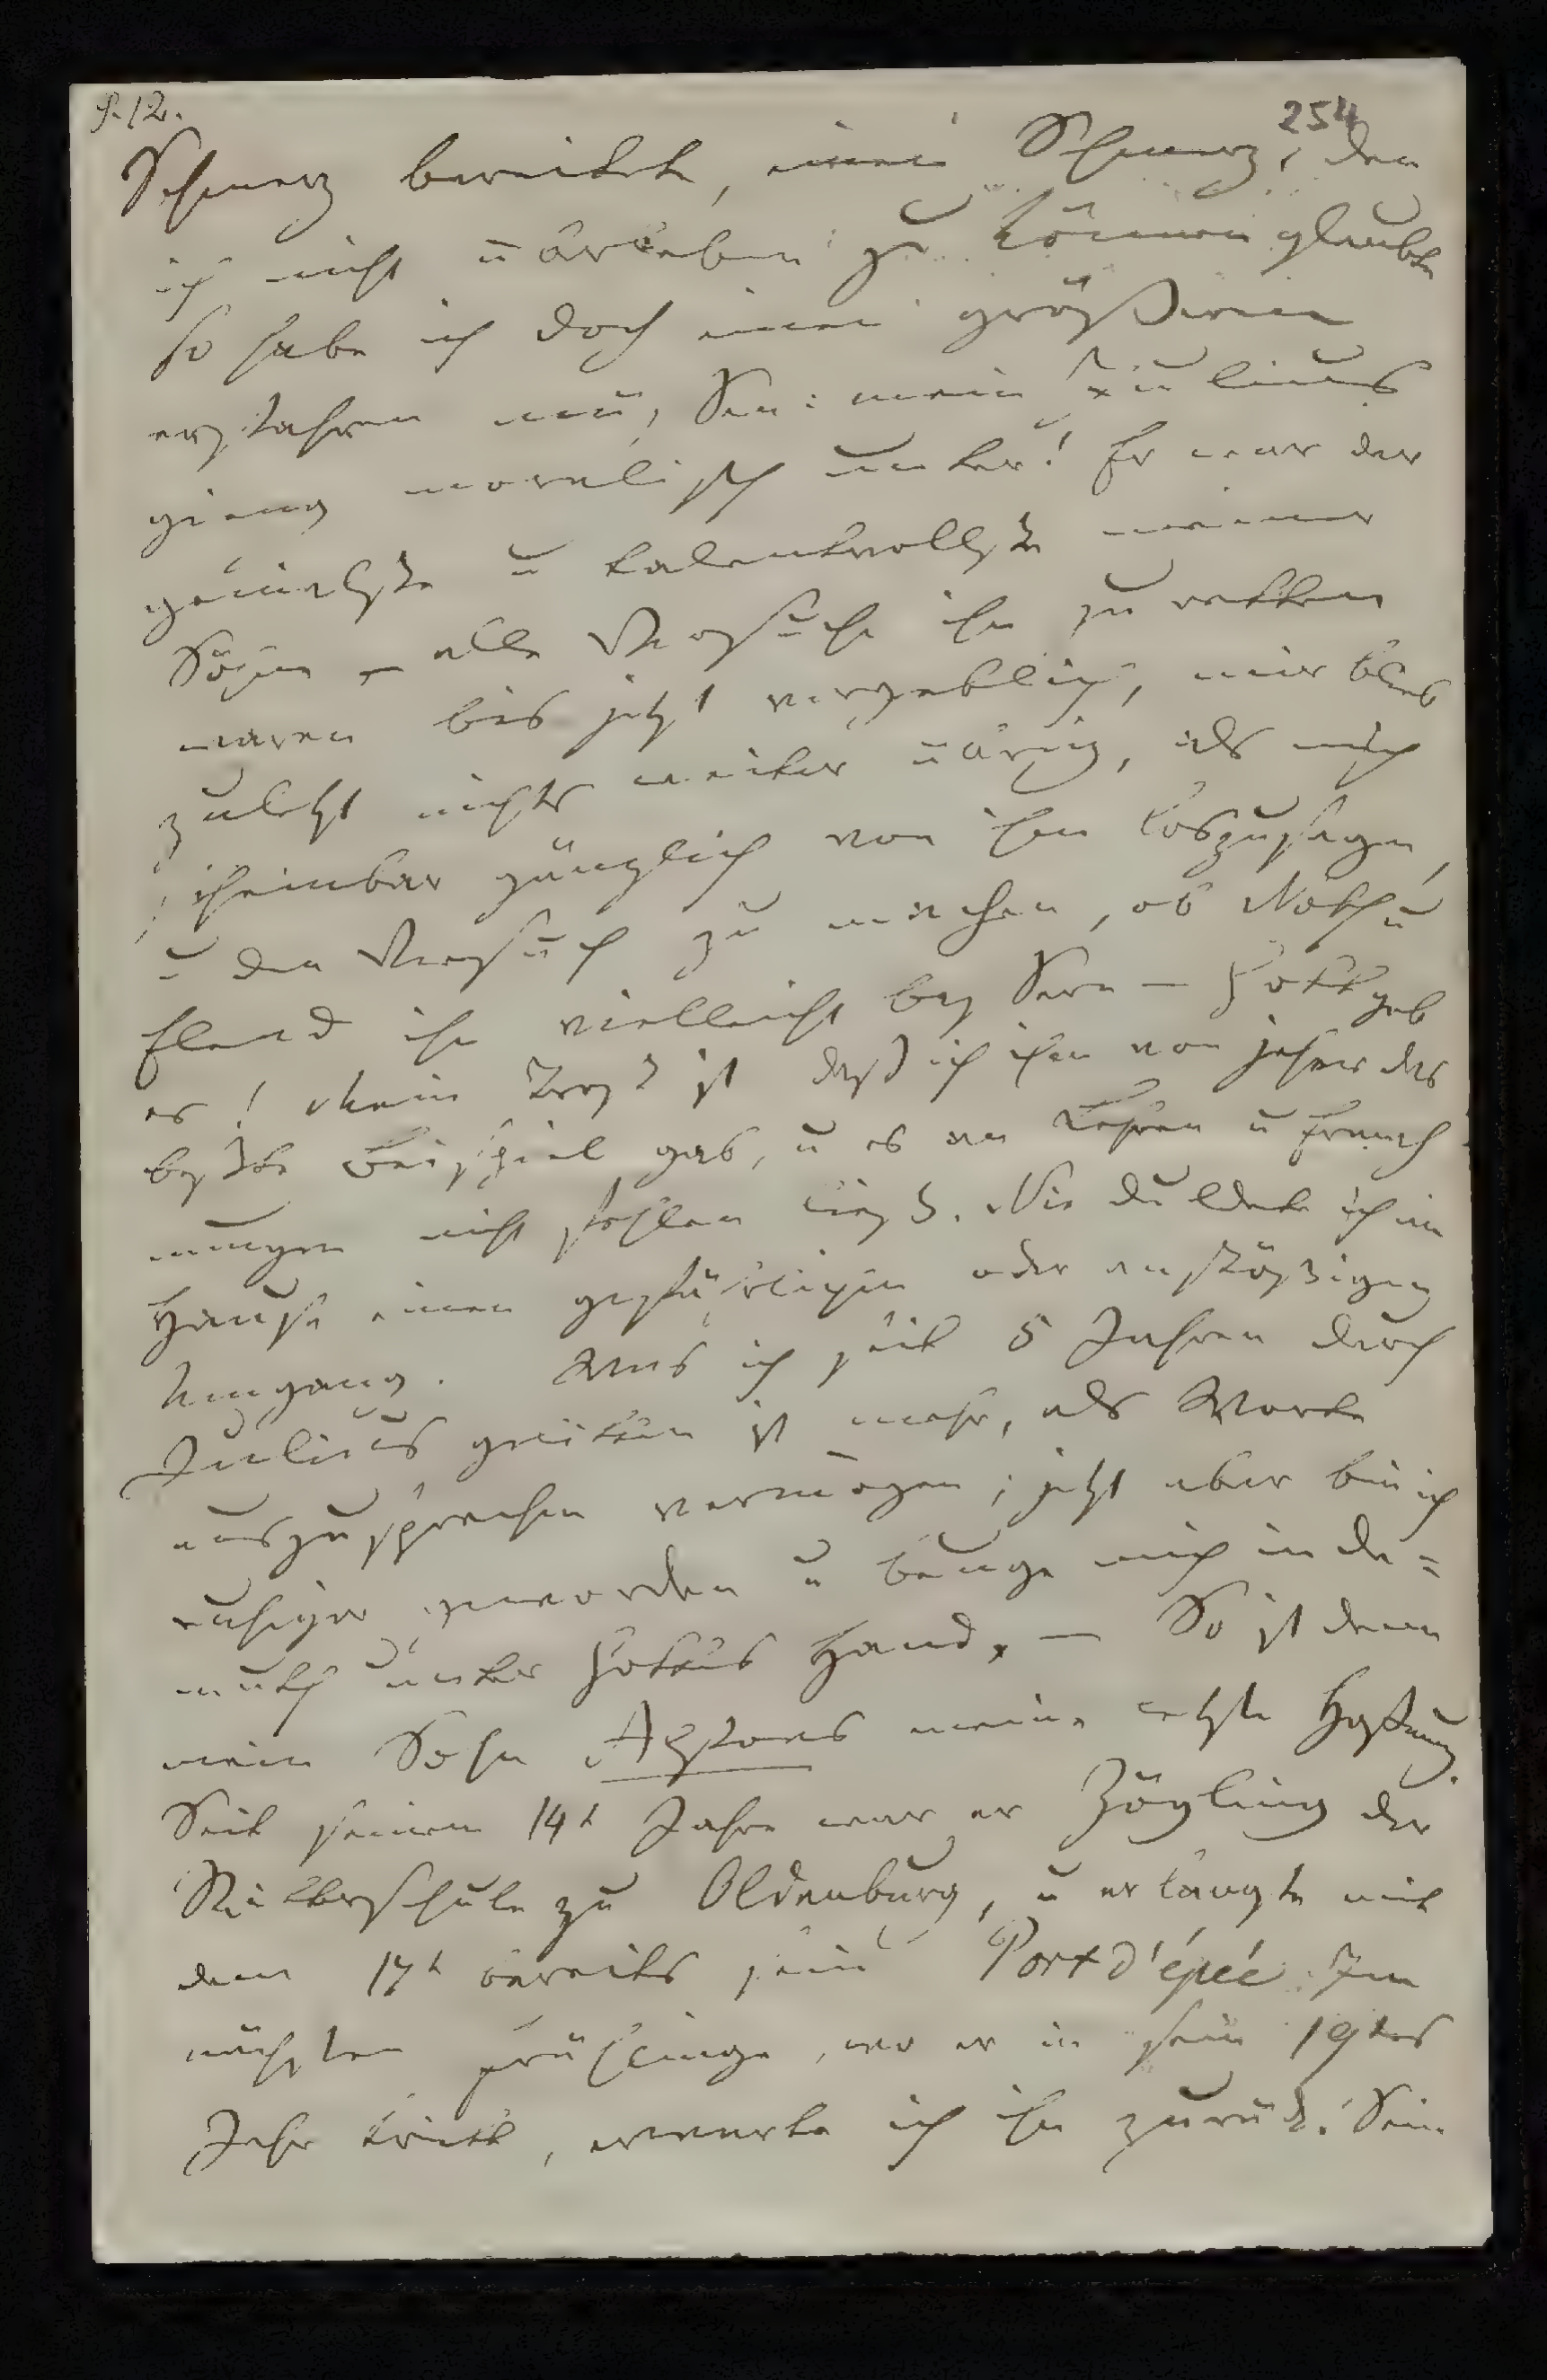 S. 12.
254
Schmerz bereitete, einen Schmerz, den
ich nicht überleben zu können glaubte
so habe ich doch einen größeren
erfahren, mein Julius
gieng moralisch unter! Er war der
genialste u talentvollste meiner
Söhne – alle Versuche ihn zu retten
waren bis jetzt vergeblich, mir blieb
zuletzt nichts weiter übrig, als mich
scheinbar gänzlich von ihm loszusagen,
u den Versuch zu machen, ob Noth u
Elend ihn vielleicht bessern – Gott geb
es! Mein Trost ist daß ich ihm von jeher das
beste Beispiel gab, u es an Lehren u Ermah
nungen nicht fehlen ließ. Nie duldete ich im
Hause einen gefährlichen oder anstößigen
Umgang. Was ich seit 5 Jahren durch
Julius gelitten ist mehr, als Worte
auszusprechen vermögen; jetzt aber bin ich
ruhiger geworden u beuge mich in De=
muth unter Gottes Hand. – So ist denn
mein Sohn Alphons meine letzte Hoffnung.
Seit seinem 14t Jahre war er Zögling der
Militärschule zu Oldenburg, u erlangte mit
dem 17t bereits sein Port d'épée. Im
nächsten Frühlinge, wo er in sein 19tes
Jahr tritt, erwarte ich ihn zurück. Sein